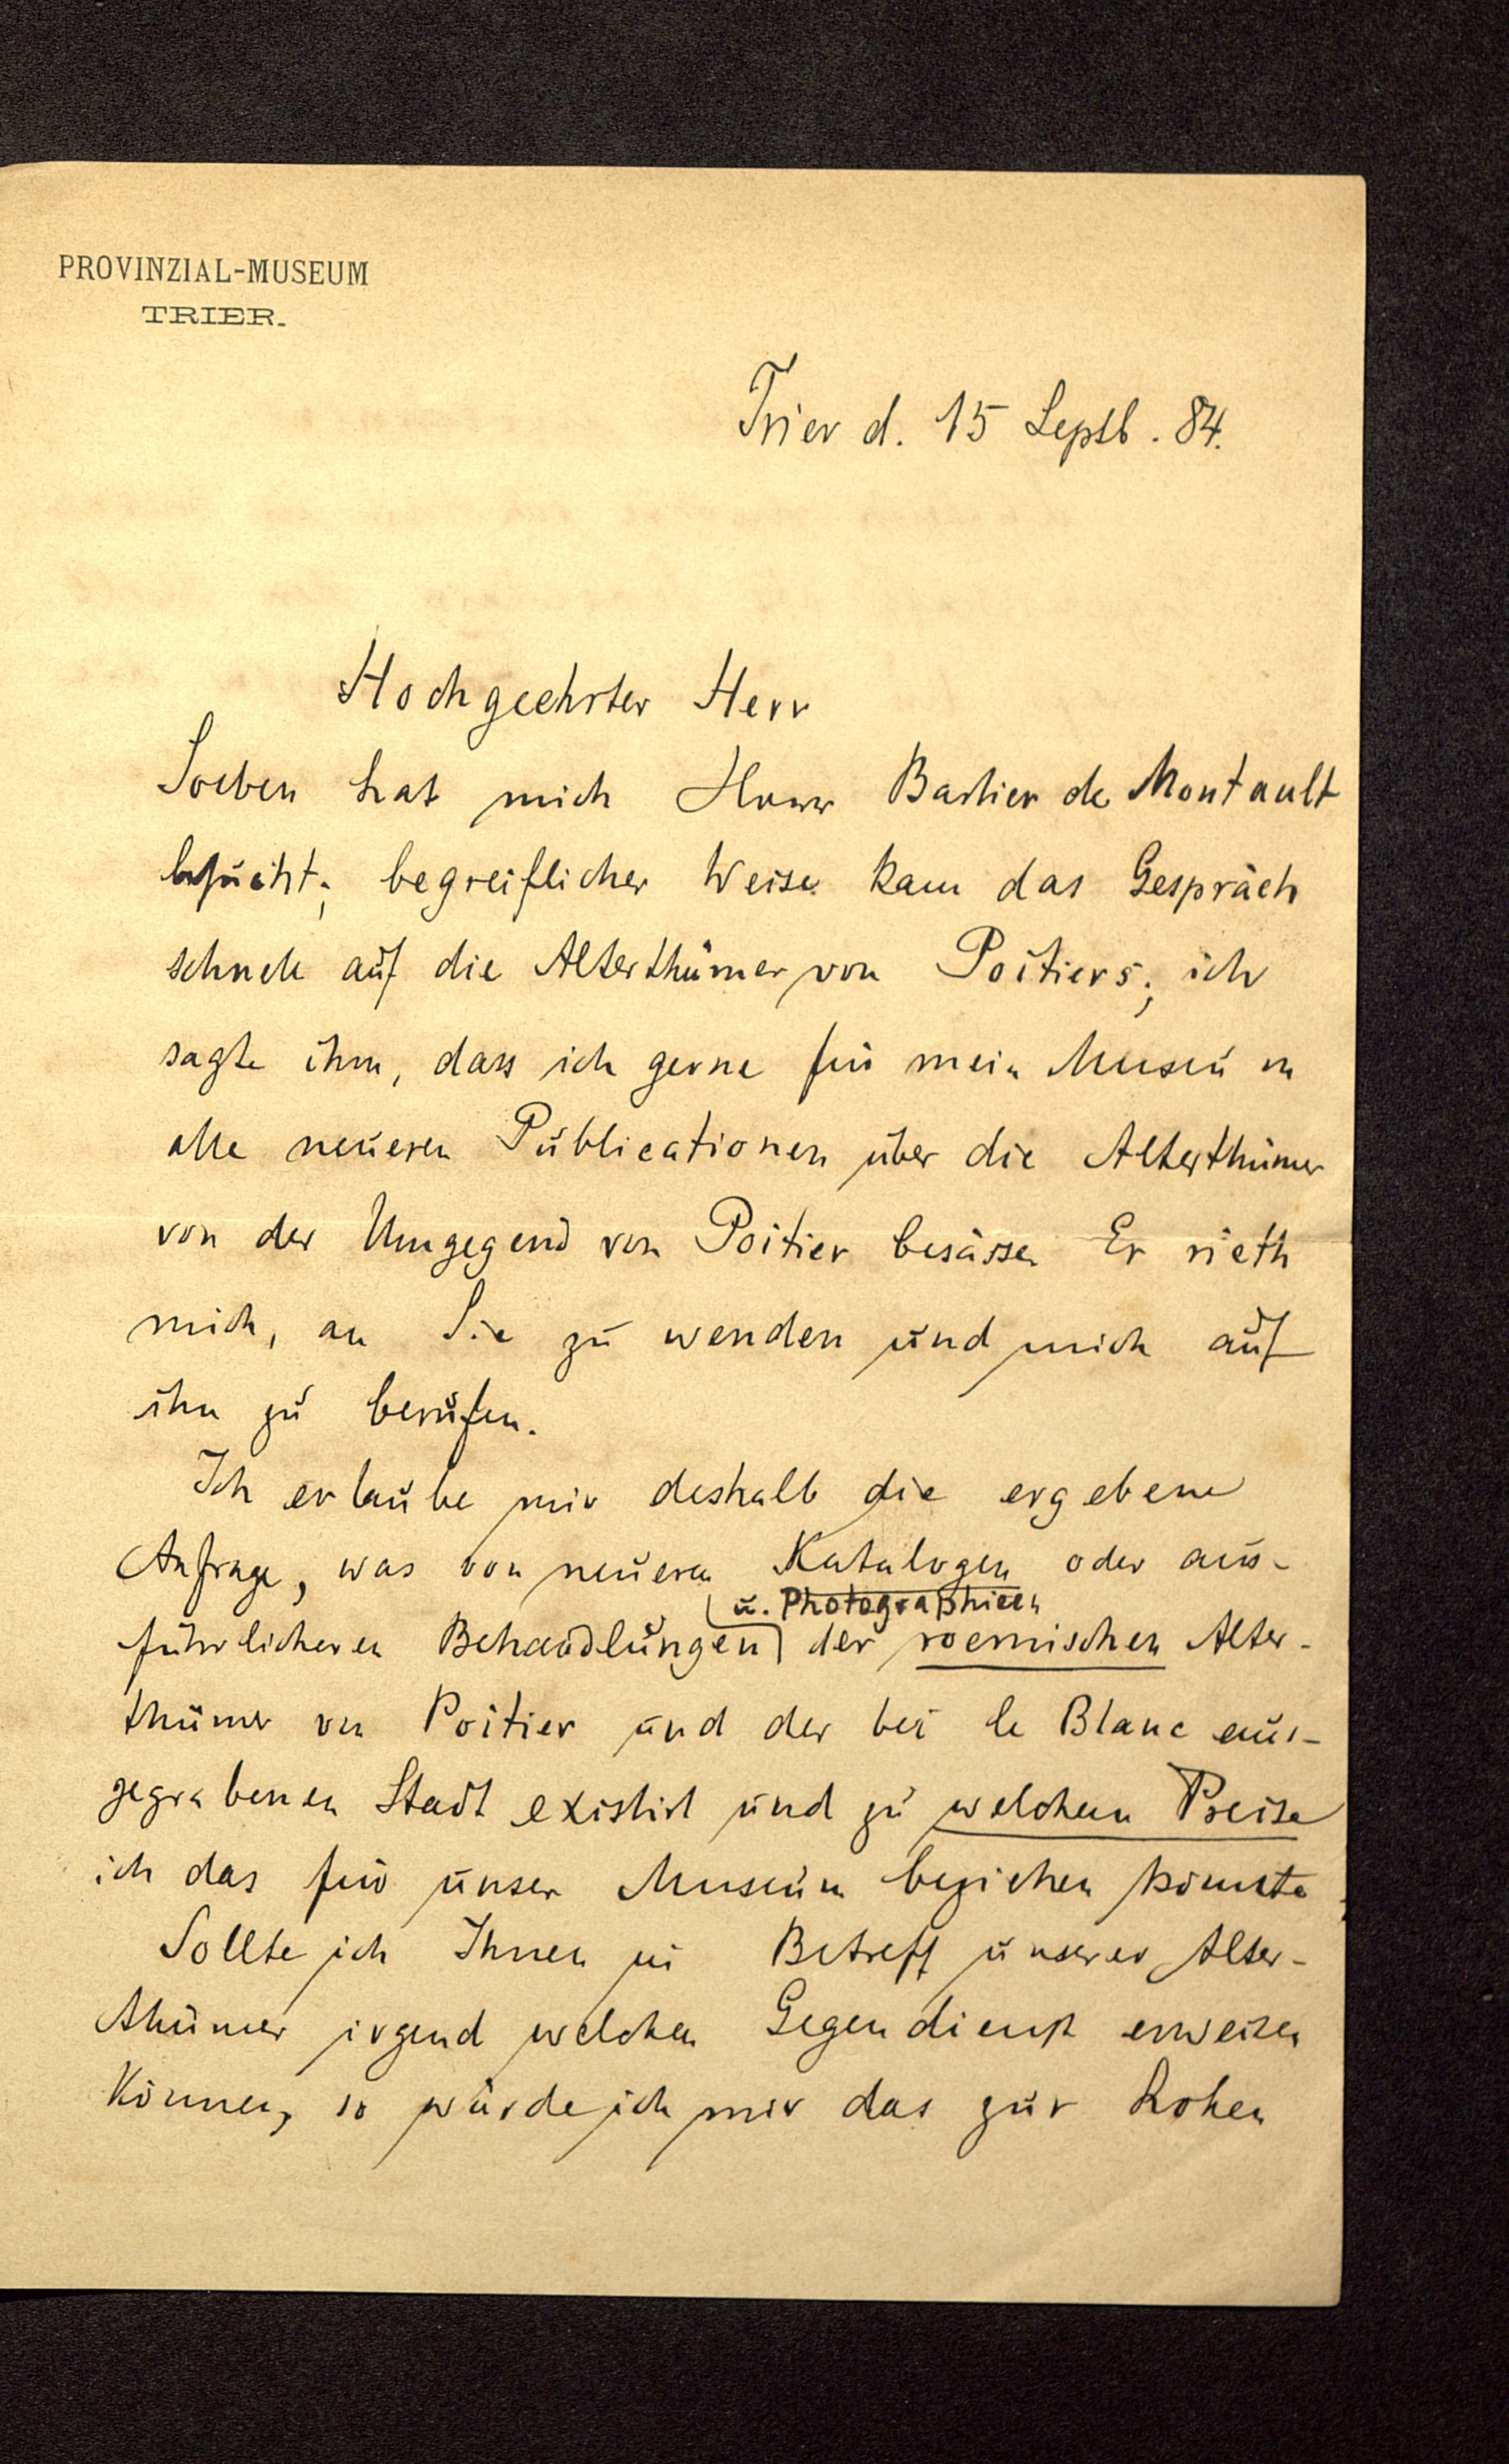 PROVINZIAL-MUSEUM
TRIER.
Trier d. 15 Septb. 84.
Hochgeehrter Herr
Soeben hat mich Herr Barbier de Montault
besucht; begreiflicher Weise kam das Gespräch
schnell auf die Alterthümer von Poitiers; ich
sagte ihm, dass ich gerne für mein Museum
alle neueren Publicationen über die Alterthümer
von der Umgegend von Poitier besässe. Er rieth
mich, an Sie zu wenden und mich auf
ihn zu berufen.
Ich erlaube mir deshalb die ergebene
Anfrage, was von neueren Katalogen oder aus-
u. Photographieen
führlicheren Behandlungen der roemischen Alter-
thümer von Poitier und der bei le Blanc aus-
gegrabenen Stadt existirt und zu welchem Preise
ich das für unser Museum beziehen könnte.
Sollte ich Ihnen in Betreff unserer Alter-
thümer irgend welchen Gegendienst erweisen
können, so würde ich mir das zur hohen